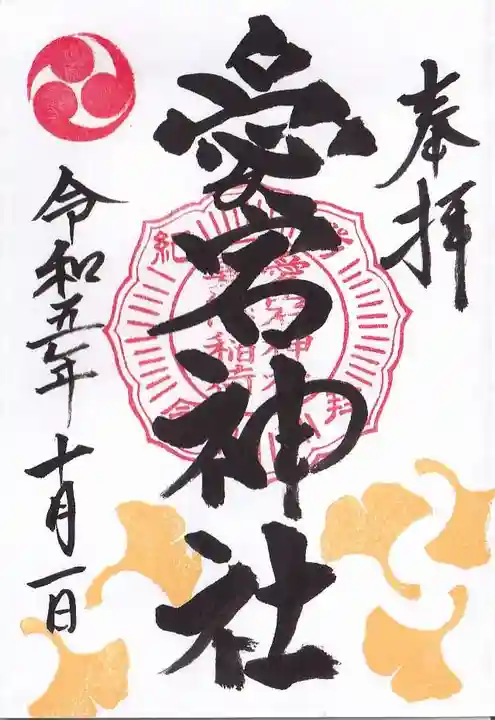 奉拝
愛宕神社
令和五年十月一日